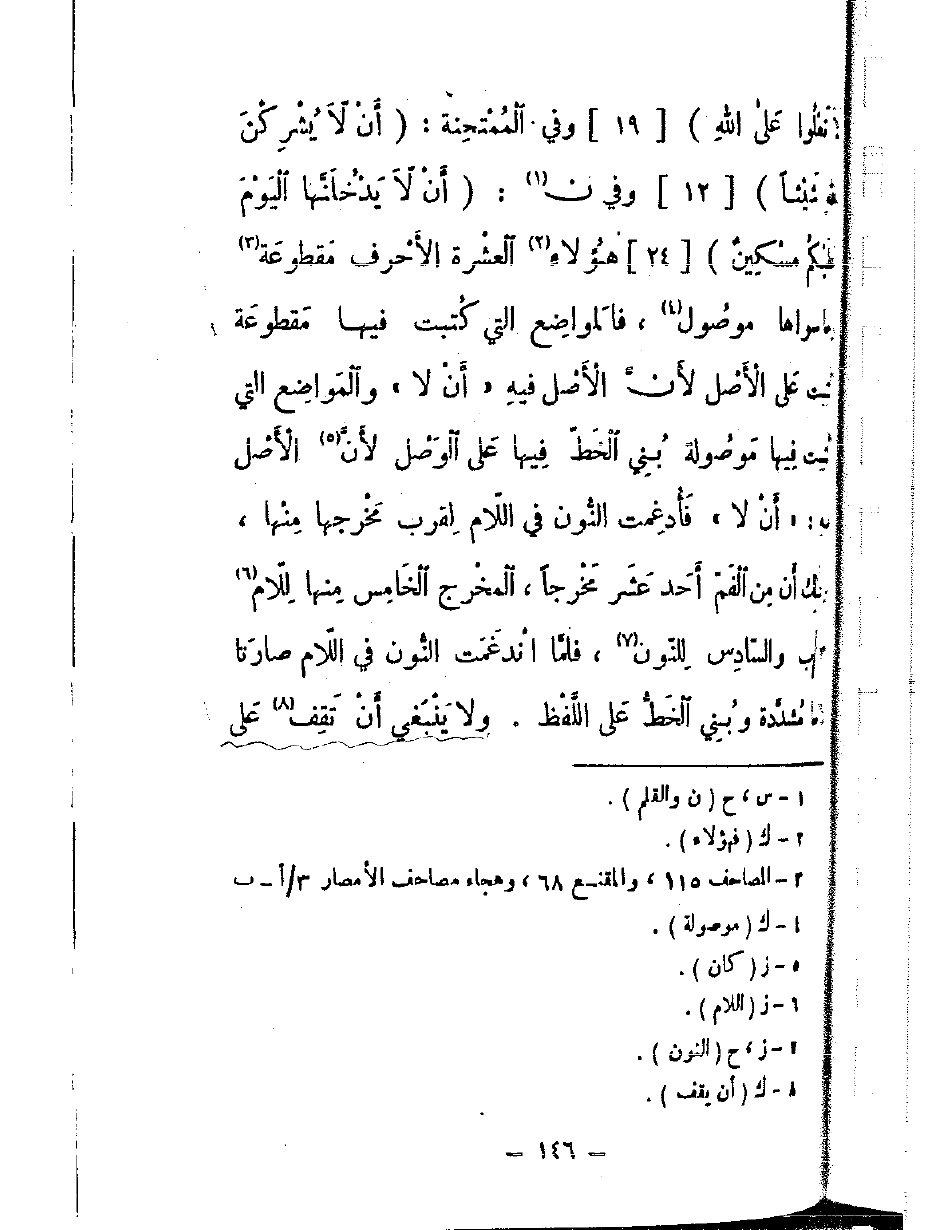 تَعْلُوا عَلَىٰ اللهِ ) [ ١٩ ] وفي ٱلْمُمْتحِنة : ( أَنْ لَّا يُشْرِكْنَ
شَيْئاً ) [ ١٢ ] وفي نۤ (١) : ( أَنْ لَّا يَدْخُلَنَّها ٱلْيَوْمَ
مِسْكِينٌ ) [ ٢٤ ] هٰؤُلاء (٢) ٱلعشْرة الأَحْرف مَقطوعَة (٣)
موصُول (٤) ، فالمواضِع التي كُتبت فيهـا مَقطوعَة
عَلَى الْأَصْل لأَنَّ الْأَصْل فيهِ « أَنْ لا » وٱلْمَواضِع التي
فِيها مَوْصُولة بُنِي ٱلْخَطّ فِيها عَلَى ٱلْوَصْل لأَنَّ (٥) الْأَصْل
« أَنْ لا » فَأُدغِمت النُّون في اللّام لِقرب مَخْرجها مِنْها ،
أن مِن ٱلْفَم أَحَد عَشَر مَخْرجاً ، ٱلْمخْرج ٱلْخَامِس مِنها لِلّام (٦)
والسّادِس لِلنّون (٧) ، فلمَّا ٱندغَمَت النُّون في اللّام صارَتا
مُشدَّدة وبُنِي ٱلْخَطُّ عَلى اللَّفْظ . ولا يَنْبَغي أَنْ تَقِف (٨) عَلى
١ - س ، ح ( ن والقلم ) .
٢ - ك ( فهؤلاء ) .
٣ - المصاحف ١١٥ ، والمقنـع ٦٨ ، وهجاء مصاحف الأمصار ٣/أ ـ ب
٤ - ك ( موصولة ) .
٥ - ز ( كان ) .
٦ - ز ( اللام ) .
٧ - ز ، ح ( النون ) .
٨ - ك ( أن يقف ) .
- ١٤٦ -